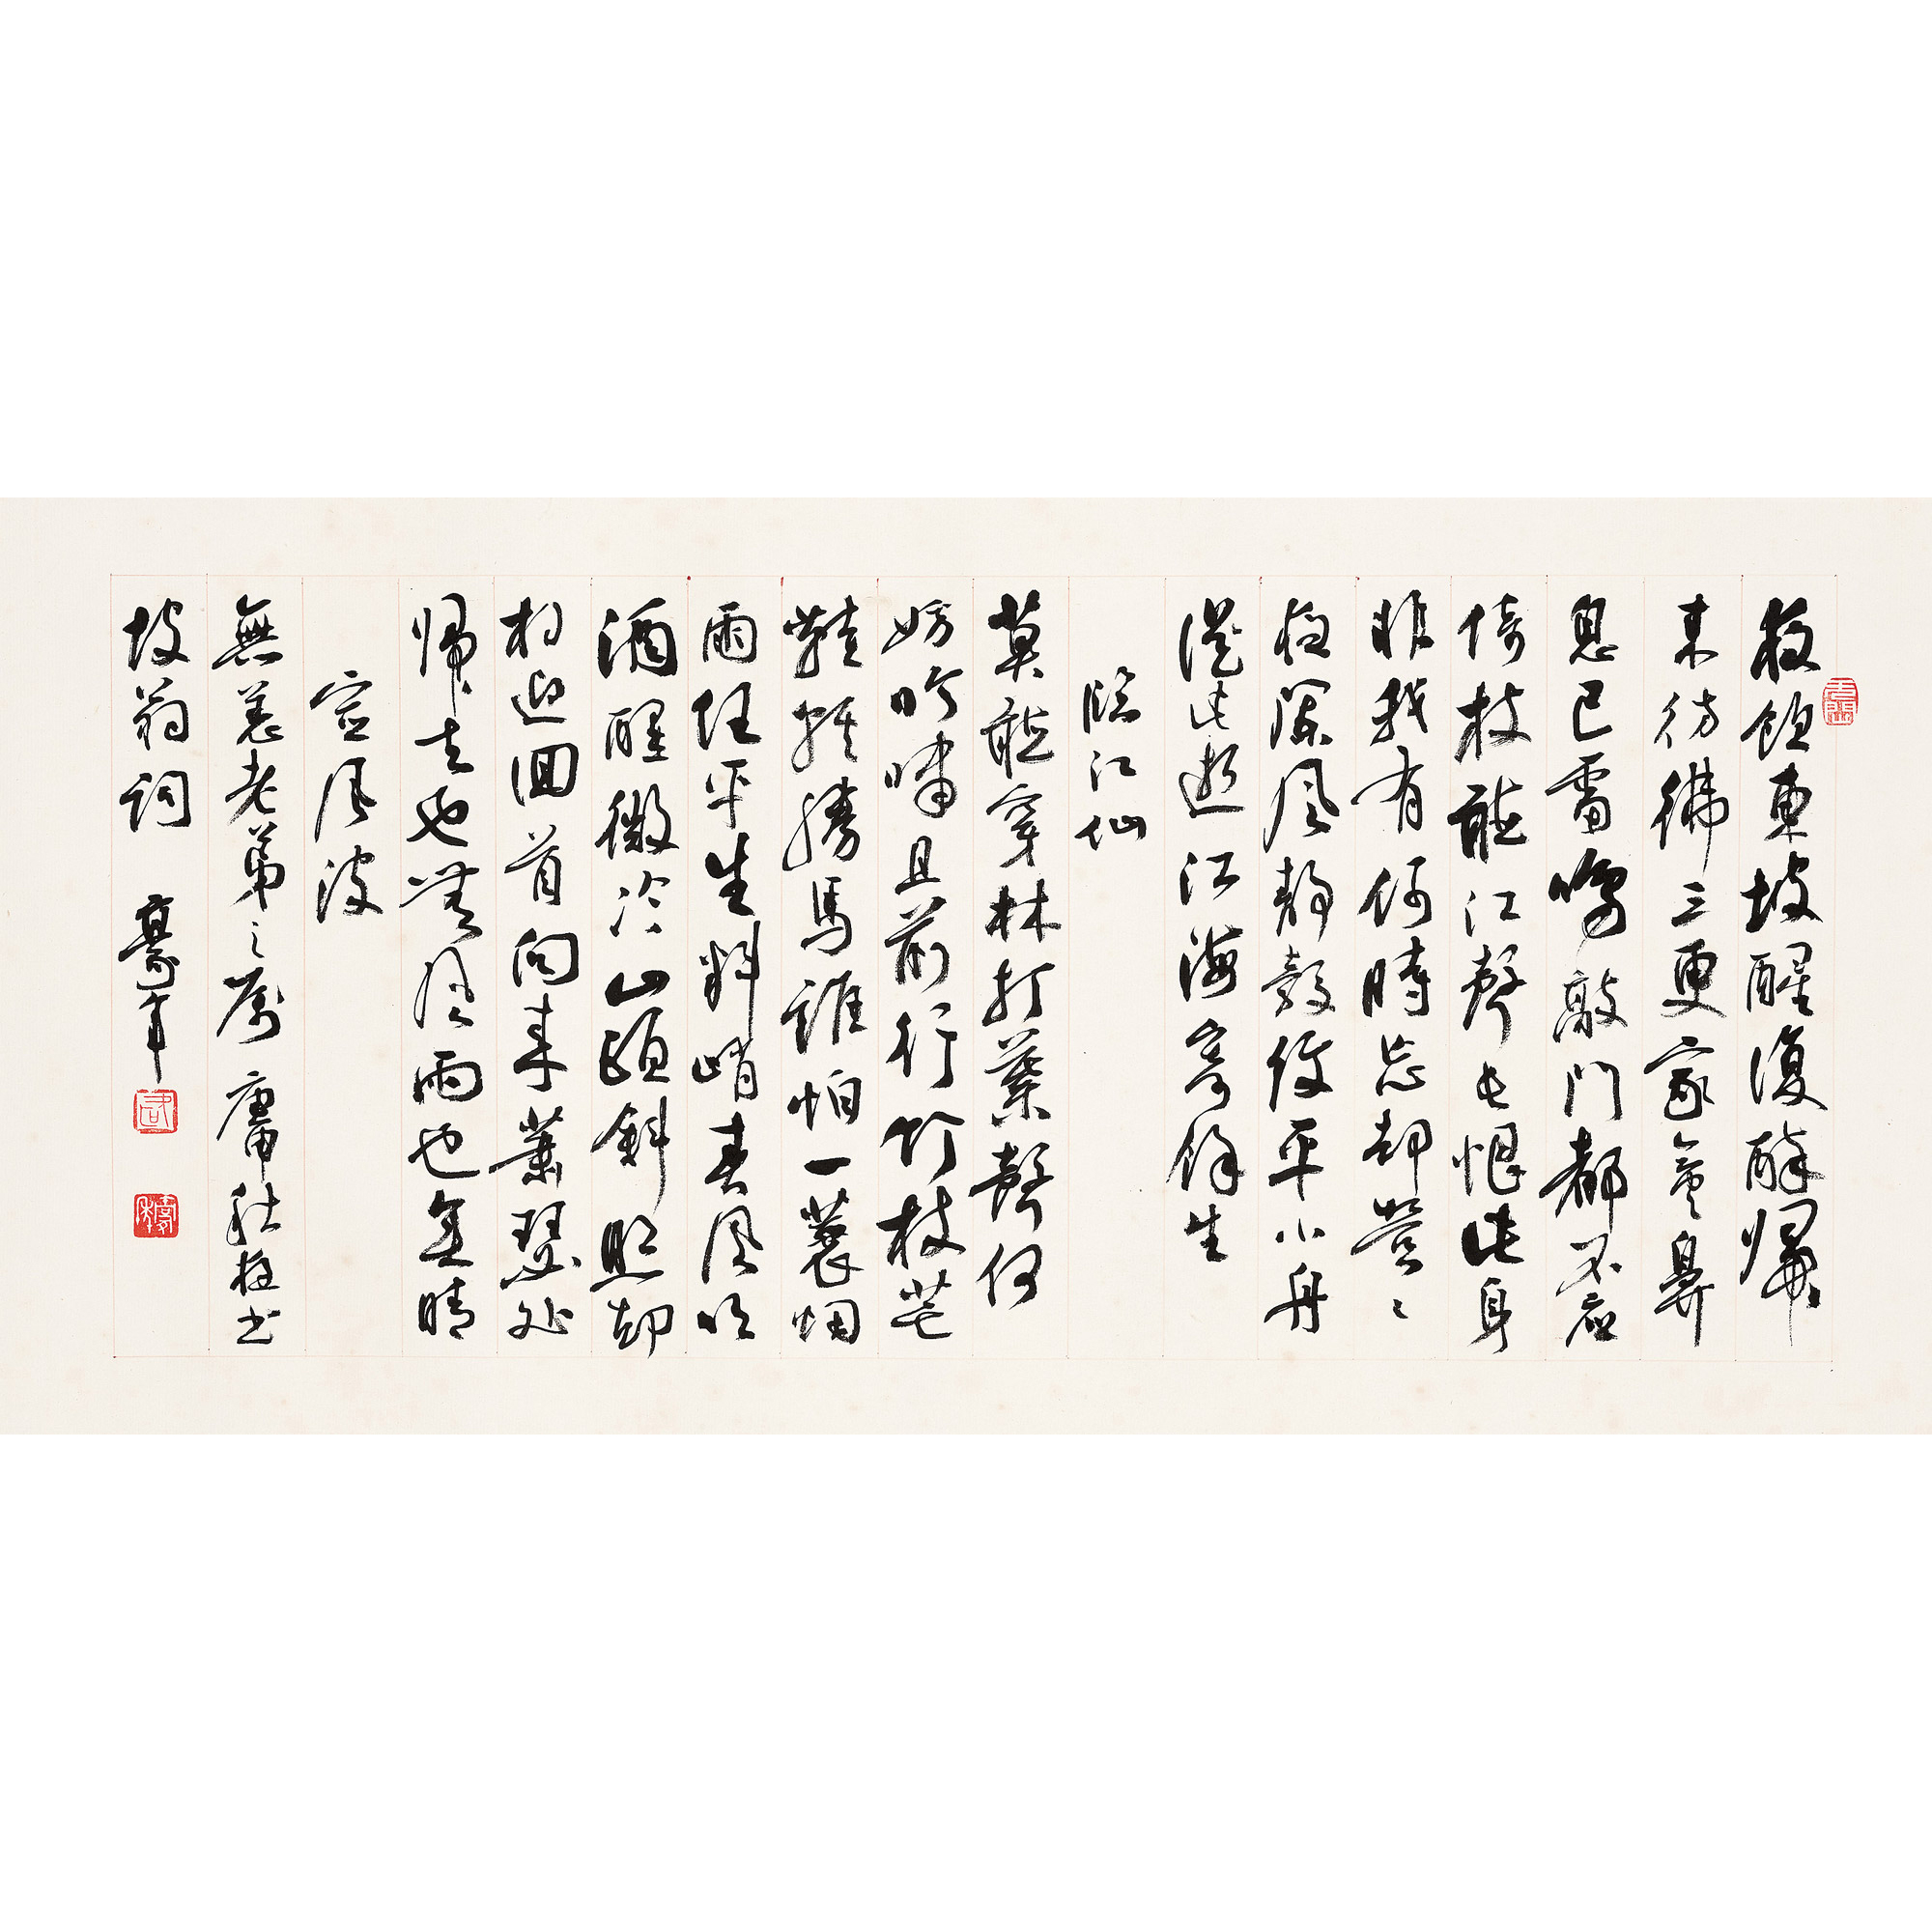 夜飲東坡醒復醉歸
来彷彿三更家童鼻
息已雷鳴敲門都不應
倚杖聽江聲長恨此身
非我有何時忘却營〻
夜闌風靜縠紋平小舟
從此逝江海寄餘生
臨江仙
莫聽穿林打葉聲何
妨吟嘯且前行竹杖芒
鞋輕勝馬誰怕一蓑烟
雨任平生料峭春風吹
酒醒微冷山頭斜照却
相迎回首向来蕭瑟处
歸〻去也無風雨也無晴
定風波
無恙老弟之屬 庚申秋夜书
坡翁詞 豪年